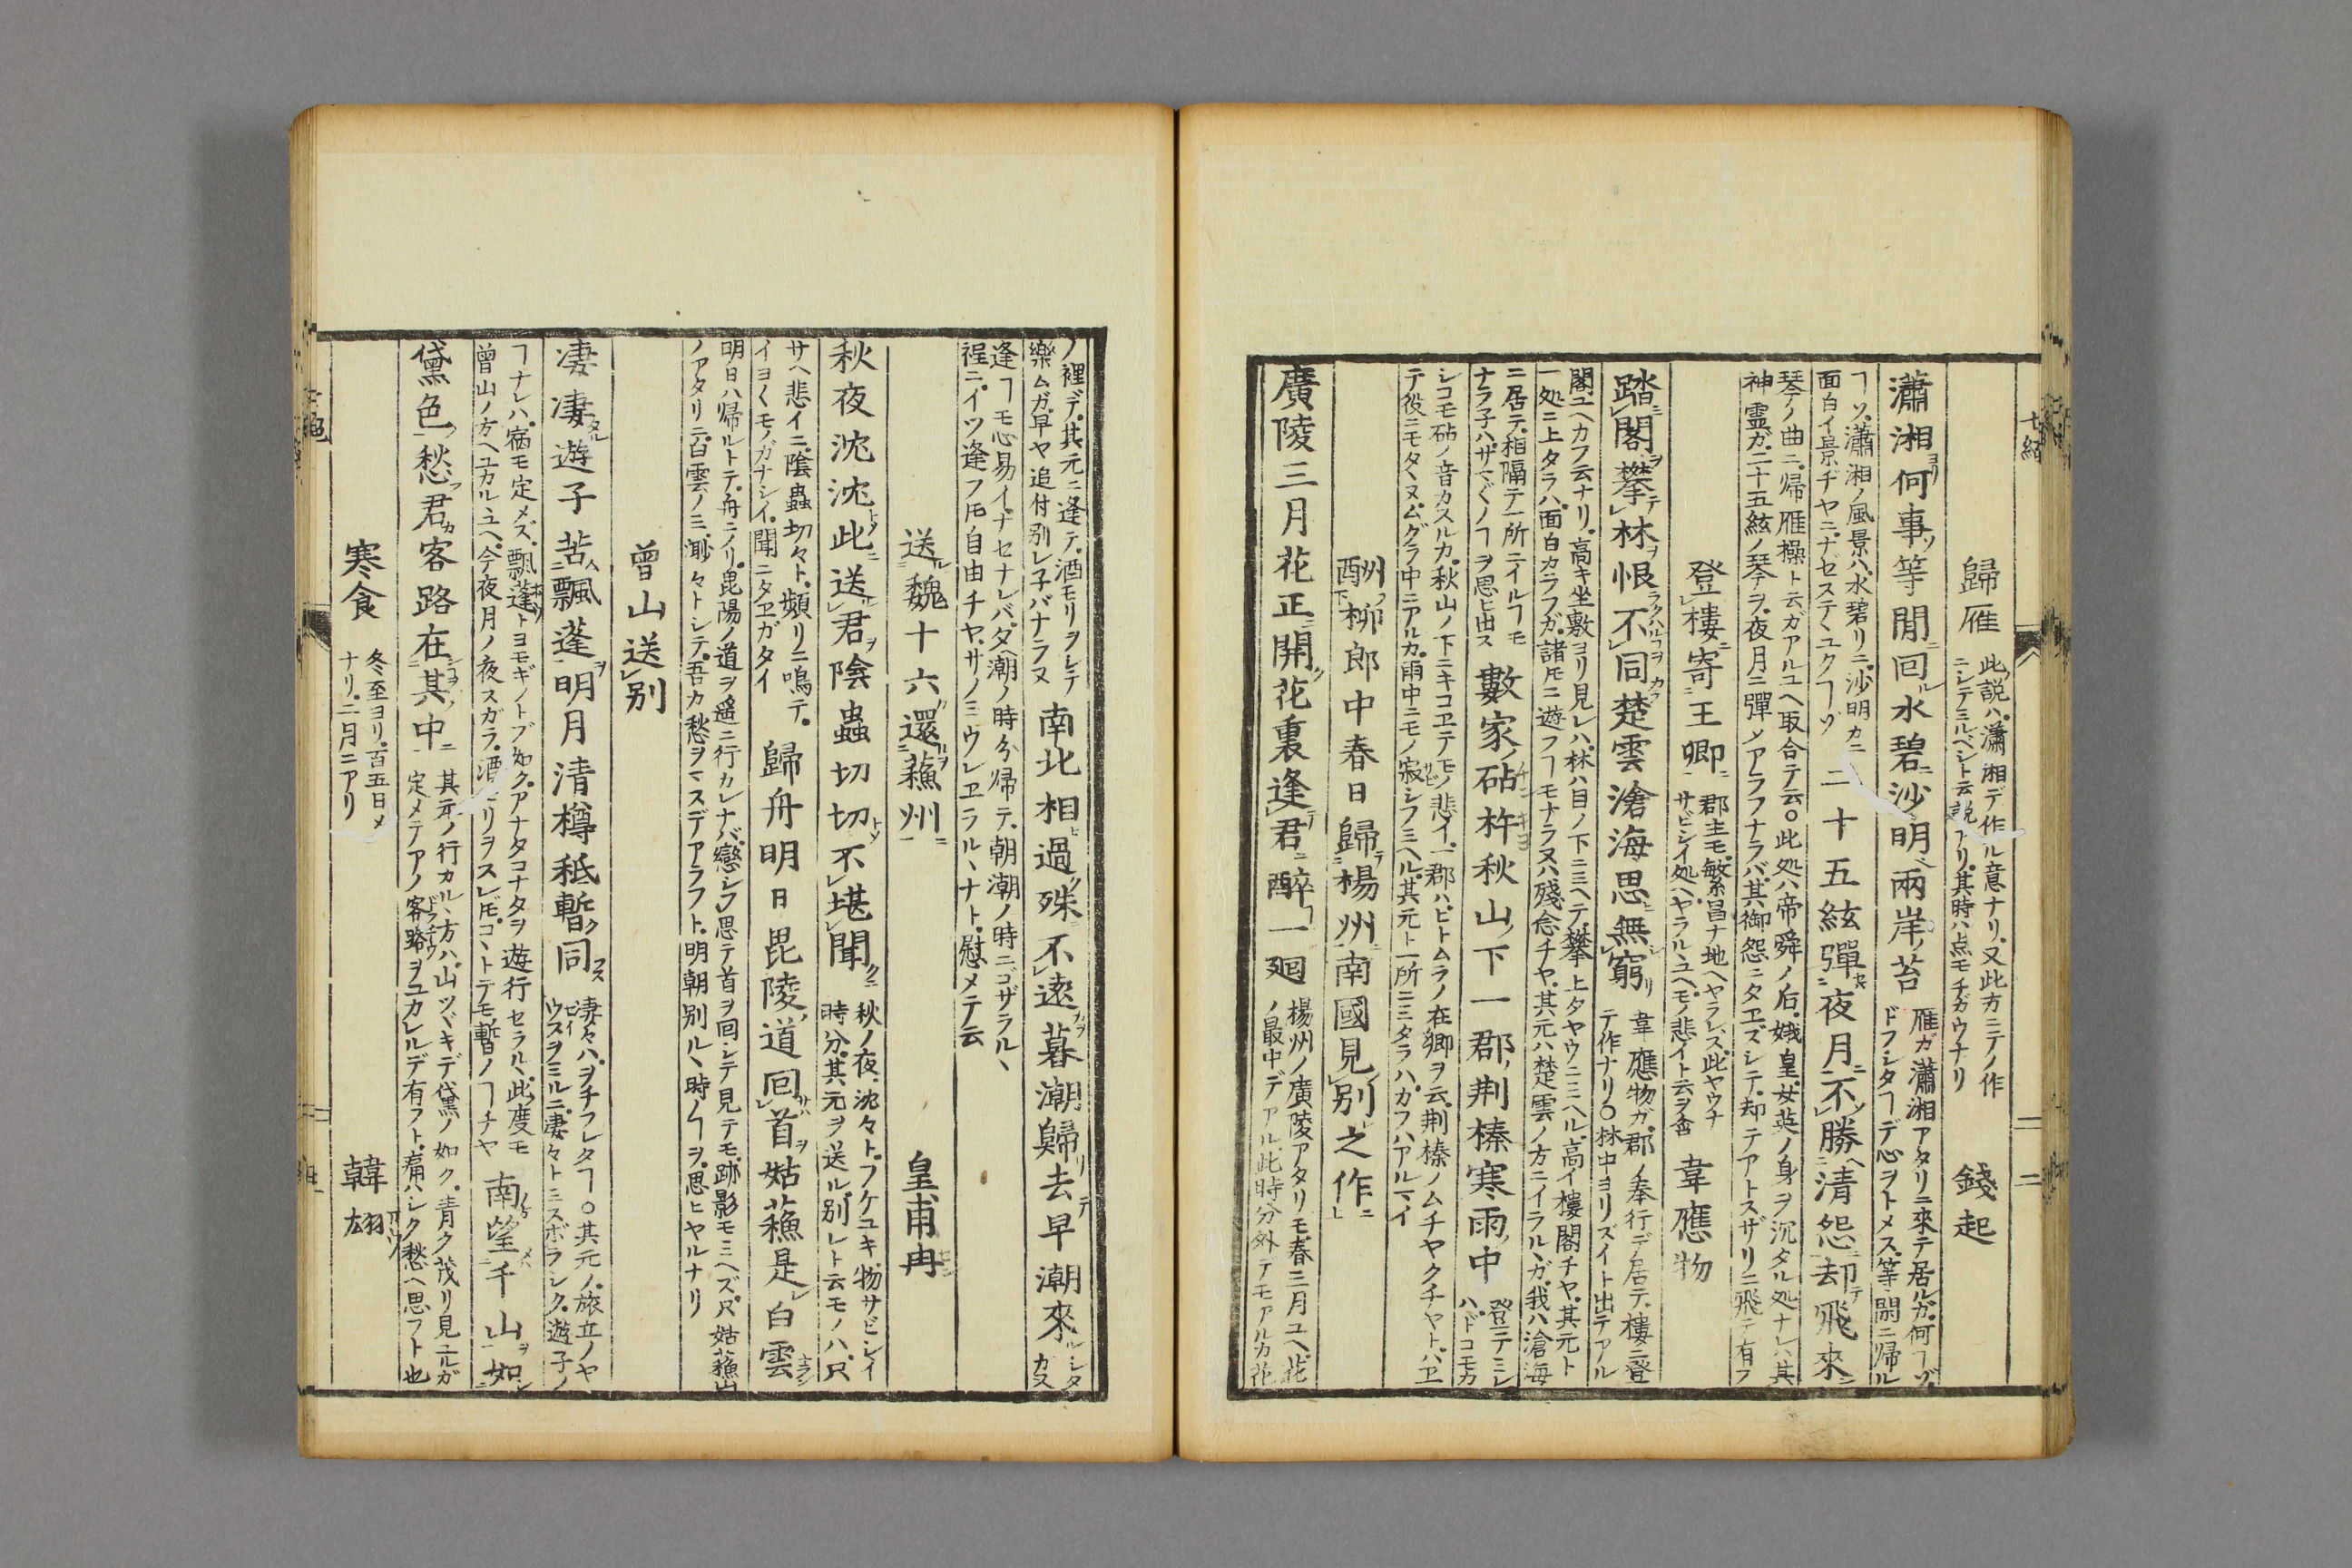 七絶
歸雁
此説ハ瀟湘デ作ル意ナリ又此方ニテノ作
ニシテミルベシト云説アリ其時ハ点モチガウナリ
錢起
瀟湘何事等閒回水碧沙明兩岸苔
雁ガ瀟湘アタリニ來テ居ルガ何ヿゾ
ドフシタヿデ心ヲトメス等閑ニ帰ル
ヿソ瀟湘ノ風景ハ水碧リニ沙明カニ
面白イ景ヂヤニナゼステヽユクヿゾ
二十五絃彈夜月不勝清怨却飛來
琴ノ曲ニ帰雁操ト云ガアルユヘ取合テ云○此処ハ帝舜ノ后娥皇女英ノ身ヲ沉タル処ナレハ其
神靈ガ二十五絃ノ琴ヲ夜月ニ彈メアラフナラバ其御怨ニタヱズシテ却テアトスザリニ飛テ有フ
登樓寄王卿
郡主モ繁昌ナ地ヘヤラレス此ヤウナ
サビシイ処ヘヤラルユヘモノ悲イト云ヲ含
韋應物
踏閣攀林恨不同楚雲滄海思無窮
韋應物ガ郡ノ奉行デ居テ樓ニ登
テ作ナリ○林中ヨリズイト出テアル
閣ユヘカフ云ナリ高キ坐敷ヨリ見レハ林ハ目ノ下ニミヘテ攀上タヤウニミヘル高イ樓閣チヤ其元ト
一処ニ上タラハ面白カラフガ諸ヒニ遊フヿモナラヌハ殘念チヤ其元ハ楚雲ノ方ニイラルヽガ我ハ滄海
ニ居テ相隔テ一所ニイルヿモ
ナラ子ハザマ〲ノヿヲ思ヒ出ス
數家砧杵秋山下一郡荆榛寒雨中
登テミレ
ハドコモカ
シコモ砧ノ音カスルカ秋山ノ下ニキコヱテモノ悲イ一郡ハヒトムラノ在郷ヲ云荆榛ノムチヤクチヤトハヱ
テ役ニモタヽヌムグラ中ニアルカ雨中ニモノ寂シフミヘル其元ト一所ニミタラハカフハアルマイ
酬柳郎中春日歸楊州南國見別之作
廣陵三月花正開花裏逢君醉一廻
楊州ノ廣陵アタリモ春三月ユヘ花
ノ最中デアル此時分外デモアルカ花
ノ裡デ其元ニ逢テ酒モリヲシテ
樂ムガ早ヤ追付別レ子バナラヌ
南北相過殊不遠暮潮歸去早潮來
逢ヿモ心易イナセナレバ夕潮ノ時分帰テ朝潮ノ時ニゴザラルヽ
裎ニイツ逢フ𪜈自由チヤサノミウレヱラルヽナト慰メテ云
送魏十六還蘓州
皇甫冉
秋夜沈沈此送君陰蟲切切不堪聞
秋ノ夜沈々トフケユキ物サビシイ
時分其元ヲ送ル別レト云モノハ只
サヘ悲イニ陰蟲切々ト頻リニ鳴テ
イヨ〱モノガナシイ聞ニタヱガタイ
歸舟明日毘陵道回首姑蘓是白雲
明日ハ帰ルトテ舟ニノリ毘陽ノ道ヲ遙ニ行カレナバ戀シフ思テ首ヲ回シテ見テモ跡影モミヘズ只姑蘓山
ノアタリニ白雲ノミ渺々トシテ吾カ愁ヲマスデアラフト明朝別ルヽ時ノヿヲ思ヒヤルナリ
曾山送別
凄凄遊子苦飄蓬明月清樽秪暫同
凄々ハヲチフレタヿ○其元ノ旅立ノヤ
ウスヲミルニ凄々トミスボラシク遊子ノ
ヿナレハ宿モ定メズ飄蓬トヨモギノトブ如クアナタコナタヲ遊行セラルヽ此度モ
曾山ノ方ヘユカルユヘ今夜月ノ夜スガラ酒モリヲスレ𪜈コヽトテモ暫ノヿチヤ
南望千山如
黛色愁君客路在其中
其元ノ行カルヽ方ハ山ツヾキデ黛ノ如ク青ク茂リ見ユルガ
定メテアノ客路ヲユカレルデ有フト痛ハシク愁ヘ思フト也
寒食
冬至ヨリ百五日メ
ナリ二月ニアリ
韓翃